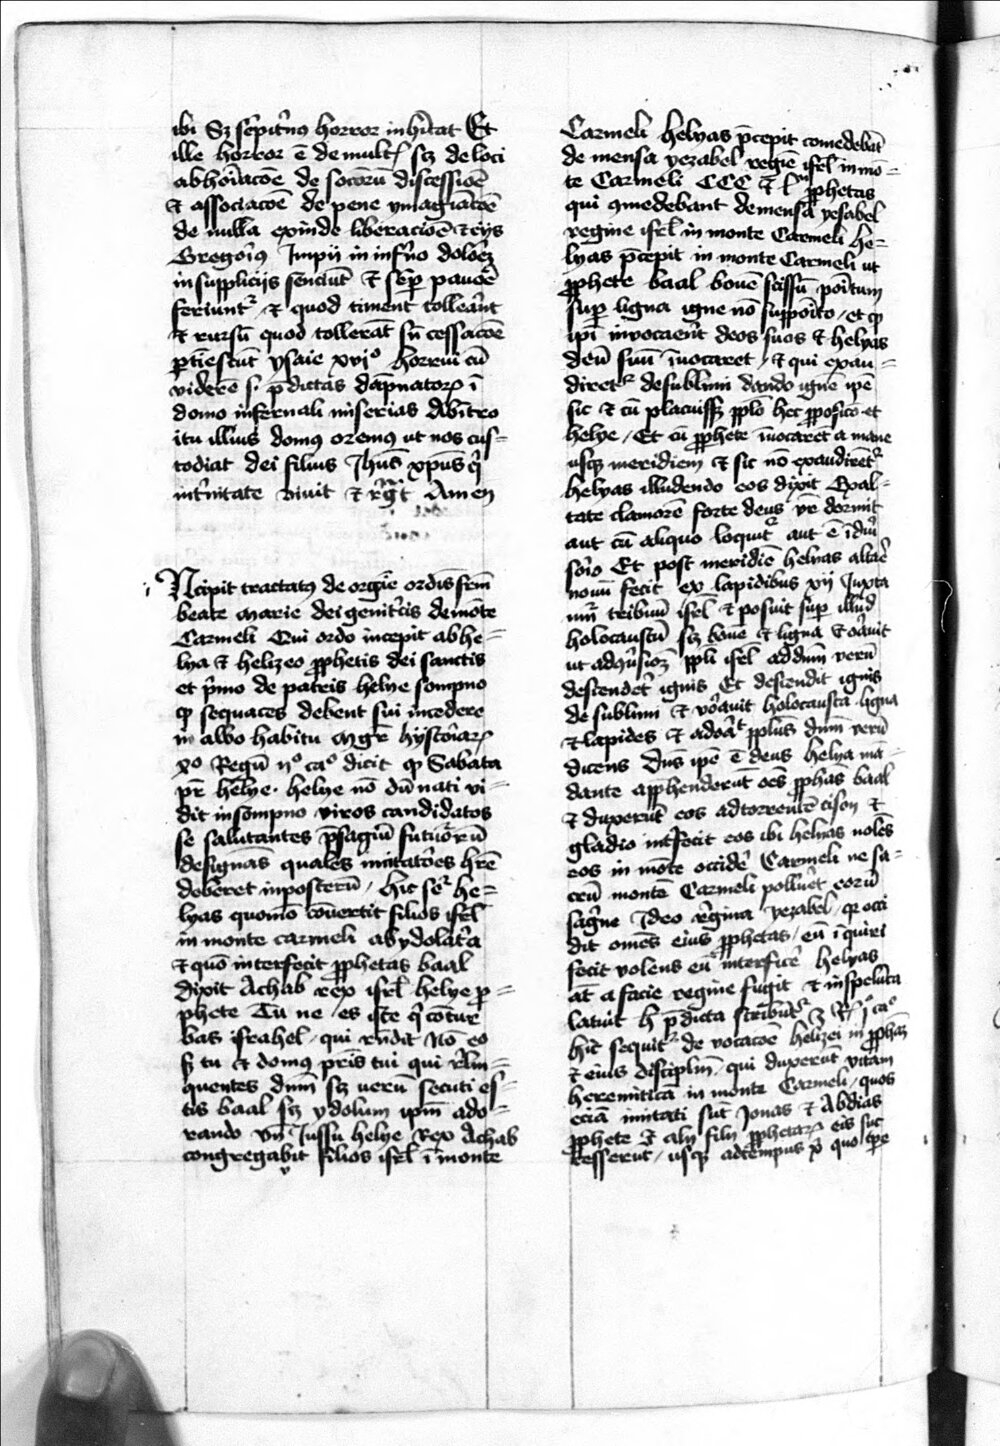 ibi Sz sẽpit̃nꝯ horror inhĩtat Et
ille horror ē de mult̃ sz de loci
abhoĩacōe de socioꝝ discessiōe
⁊ associacōe de pene ymagĩacōe
de nulla exinde liberaciōe ⁊ eijs
Gregoriꝯ Impij in inf̃no dolõez
in supplicijs senciūt ⁊ sep̃ pauõe
feriunt᷑ ⁊ quod timent tolleãnt
⁊ rursū quod tollerāt sñ cessacōe
ꝑtiēscūt ysaie xxjᵒ horrui cū
viderē s̃ p̄dictas dāpnatoꝝ ī
domo infernali miserias Ab ĩtro
itu illius domꝯ oremꝯ ut nos cus-
todiat dei filius Jhūs xp̄us q̃
int̃nitate viuit ⁊ r̃g̃t Amen
i Ncipit tractatꝯ de orgīe ordīs frm̄
beate marie dei genit̃cis de mōte
Carmeli Qui ordo incepit ab he-
lya ⁊ helizeo ꝓphetis dei sanctis
et p̃mo de patris helye sompno
ꝙ sequaces debent sui incedere
in albo habitu Mgr̃ hystoriaꝝ
xᵒ Regū ijᵒ caᵒ dicit ꝙ Sabata
pr̃ helye helye nō dū nati vi-
dit in sompno viros candidatos
se salutantes p̄sagiū futuroꝝ
designās quales imitatões hr̄e
deberet inposterū / hic se᷑ he-
lyas quomō cōuertit filios isrl̄
in monte carmeli ab ydolat̃a
⁊ quō interfecit ꝓphetas baal
Dixit Achab rex isrl̄ helye ꝓ-
phete Tu ne es iste q̃ cōtur
bas israhel qui rn̄dit Nō eo
sꝫ tu ⁊ domꝯ prīs tui qui r̃lin-
quentes dnm̄ sz verū secuti es-
tis baal sz ydolum ipm̄ ado-
rando vñ Jussu helye Rex Achab
congregabit filios isrl̄ ī monte
Carmeli helyas p̄cepit comedebāt
de mensa yezabel regīe isrl̄ in mō-
te Carmeli CCC ⁊ L ꝓphetas
qui ꝯmedebant de mensa yesabel
regine isrl̄ in monte Carmeli he-
lyas p̄cepit in monte Carmeli ut
ꝓphete baal bouē scissū poĩtum
suꝑ ligna igne nō supposito / et ꝙ
ipī invocaẽnt deos suos ⁊ helyas
deū suū īuocaret ⁊ qui exau-
diret᷑ de sublimi dando igne ipē
sic ⁊ cū placuiss ꝑplō hec ꝓposicō et
helye / Et cū ꝓphete īuocarēt a mane
usqꝫ meridiem ⁊ sic nō exaudirēt᷑
helyas illudendo eos dixit Exal-
tate clamorē forte deus vr̄ dormit
aut cū aliquo loquit᷑ aut ē ī diũ
soĩo Et post meridiē helyas altar̃
nouū fecit ex lapidibus xij Juxta
nūr̄ tribuū isrl̄ ⁊ posuit suꝑ illud
holocaustū sz bouē ⁊ ligna ⁊ orauit
ut ad ꝯũsioꝫ ppl̄i isrl̄ ad dnm̄ verū
descendet̃ ignis Et descendit ignis
de sublimi ⁊ vorauit holocausta ligna
⁊ lapides ⁊ adoãt ꝑplūs dnm̄ verū
dicens Dn̄s ipē ē deus helya mā-
dante apphenderūt oēs ꝓphās baal
⁊ duxerūt eos ad torrentē cison ⁊
gladio int̃fecit eos ibi helyas nolēs
eos in mōte occidẽ Carmeli ne sa-
crū montē Carmeli pollũet eoꝝ
sag̃ne Ideo r̃gina yezabel / qꝛ occi
dit omēs eius ꝓphetas / eū īquiri
fecit volens eū interficẽ helyas
āt a facie regine fugit ⁊ in spelūca
latuit h̄ p̄dicta scribūt᷑ 3 Rꝭ caᵒ
hic sequit᷑ de vocacōe helizei in ꝓphāz
⁊ eius disciplīn / qui duxerūt vitam
heremiticā in monte Carmeli / quos
eciā imitati sūt Jonas ⁊ Abdias
ꝓphete ⁊ alij filij ꝓphetaꝝ eis suc
cesserūt / usqꝫ ad tempus xⁱ quo tꝑe